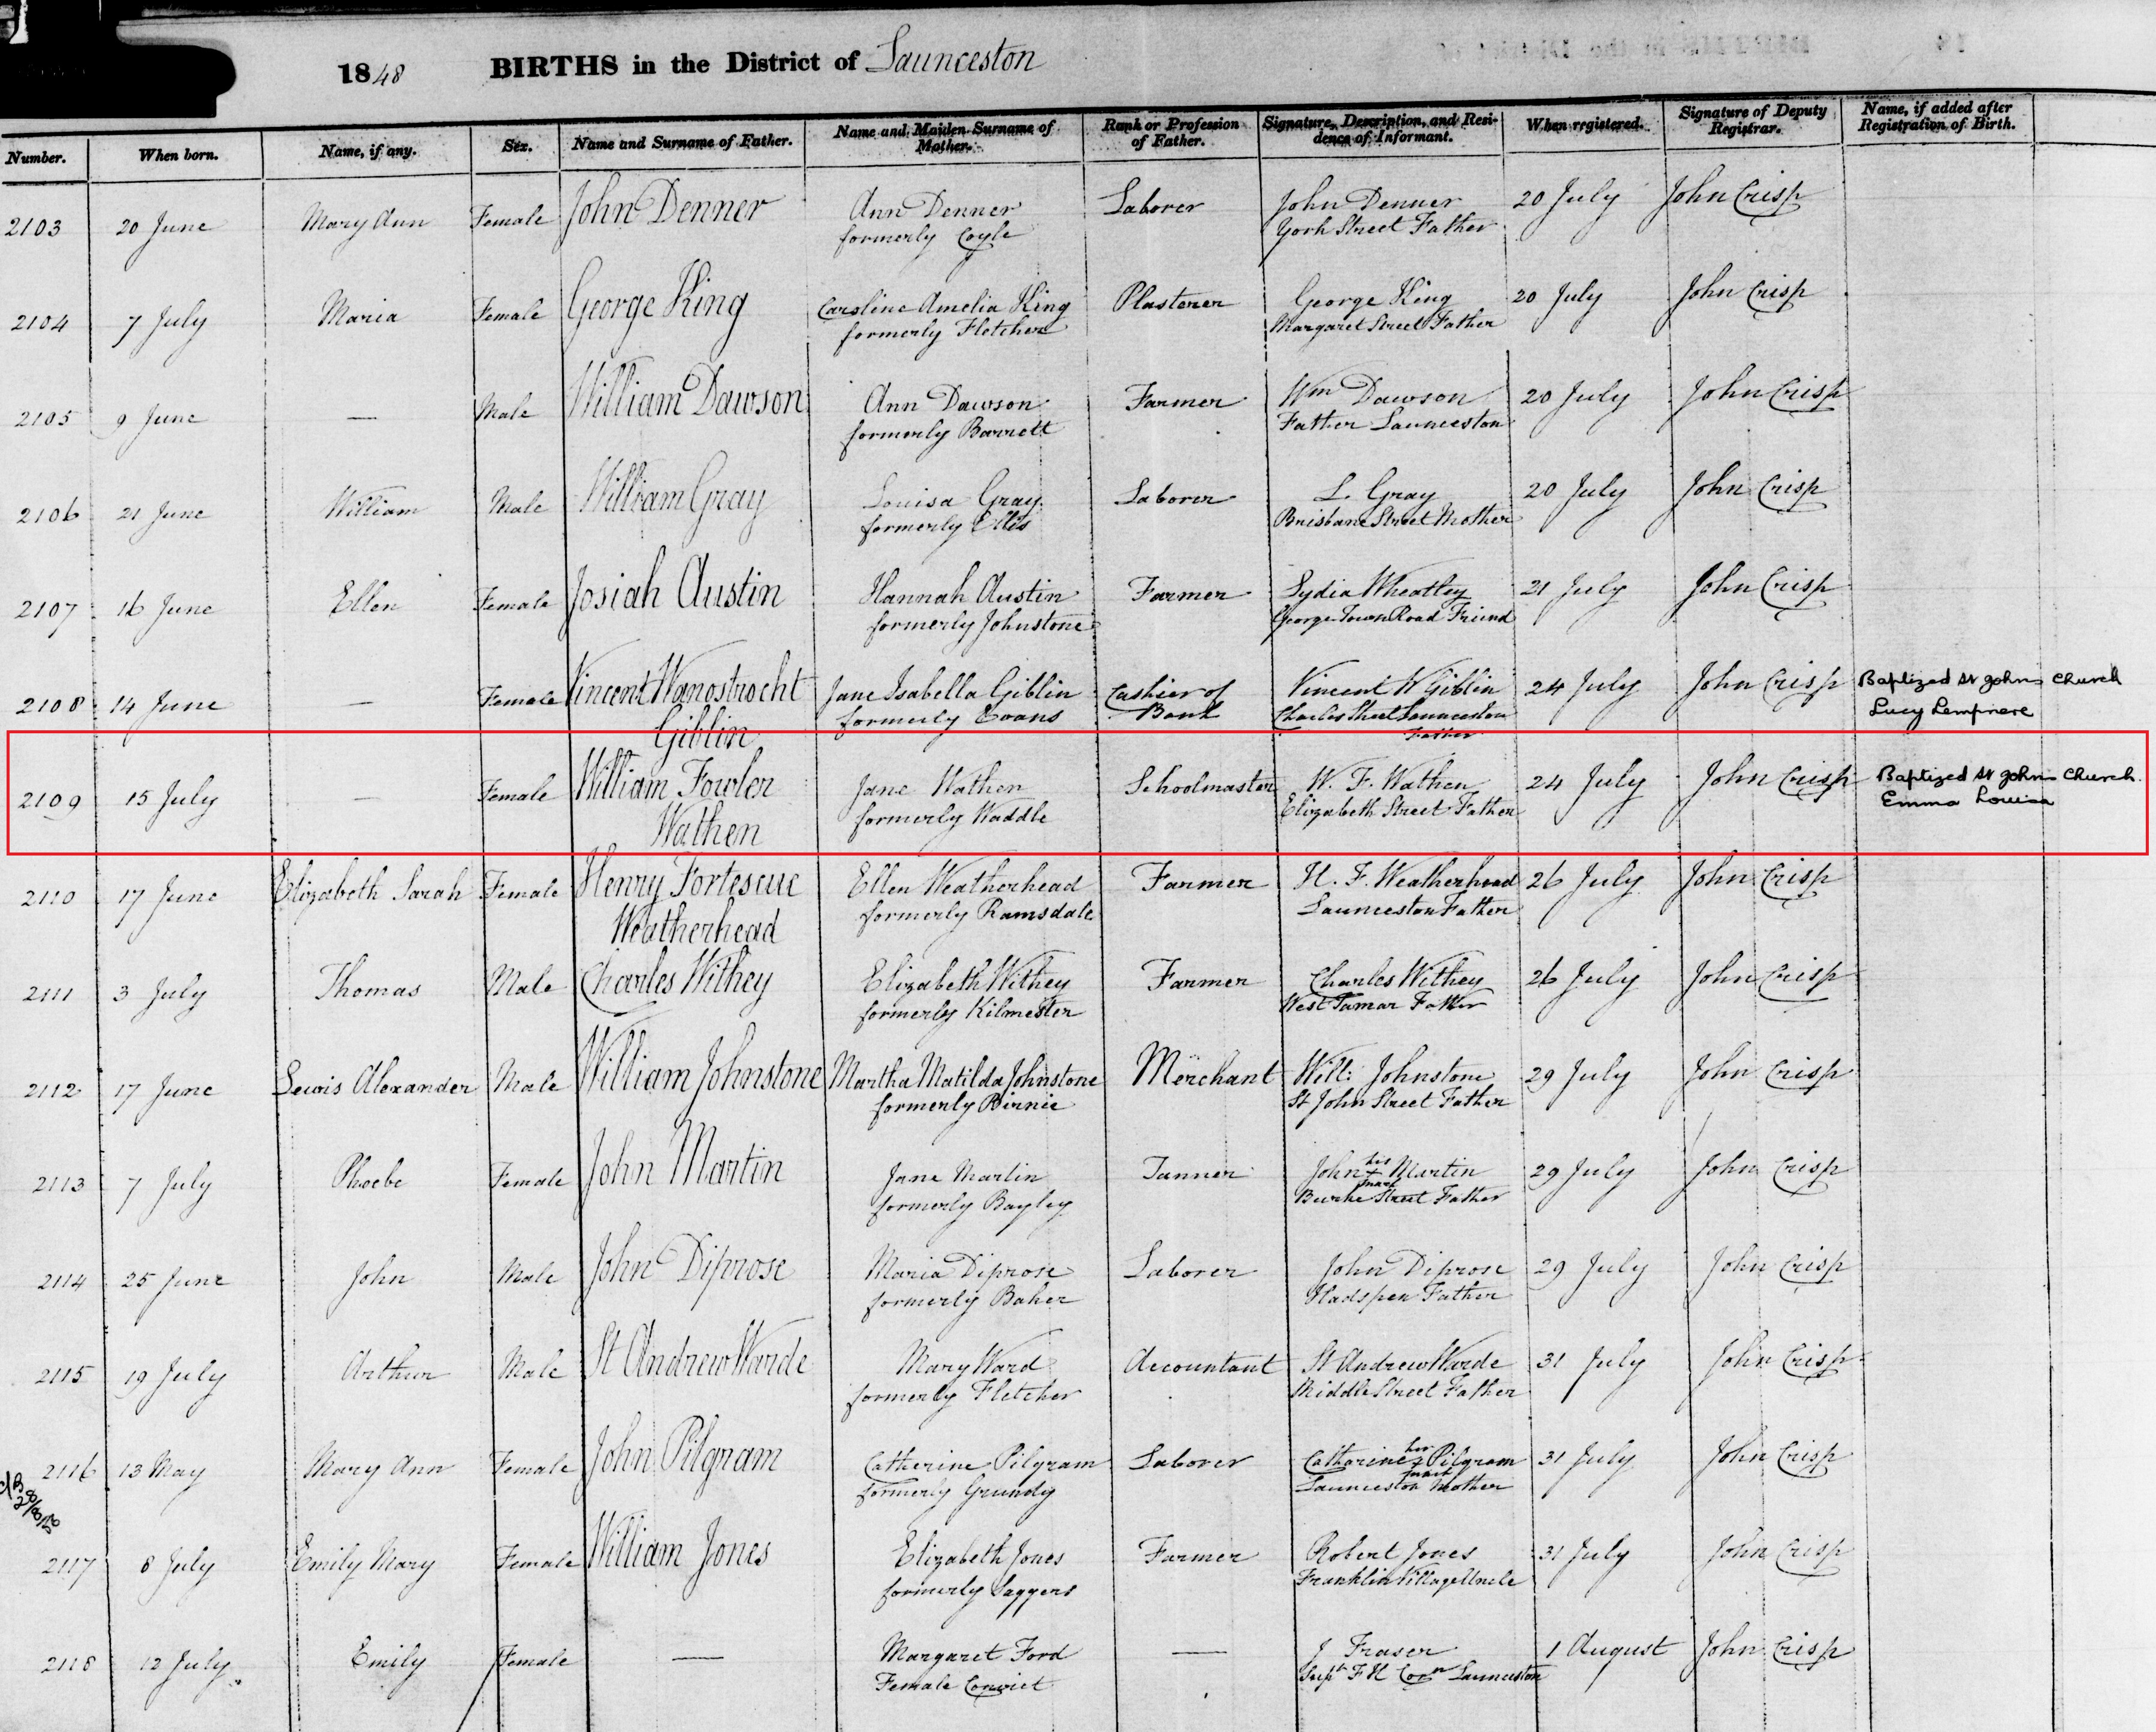 1848 BIRTHS in the District of Launceston
Number. When born. Name, if any. Sex. Name and Surname of Father. Name and Maiden Surname of Mother. Rank or Profession of Father. Signature, Description, and Residence of Informant. When registered. Signature of Deputy Registrar. Name, if added after Registration of Birth.
2103 20 June Mary Ann Female John Denner Ann Denner Laborer John Denner 20 July John Crisp
formerly Coyle York Street Father
2104 7 July Maria Female George King Caroline Amelia King Plasterer George King 20 July John Crisp
formerly Fletcher Margaret Street Father
2105 9 June — Male William Dawson Ann Dawson Farmer Wm Dawson 20 July John Crisp
formerly Barrett Father Launceston
2106 21 June William Male William Gray Louisa Gray Laborer L. Gray 20 July John Crisp
formerly Ellis Brisbane Street Mother
2107 16 June Ellen Female Josiah Austin Hannah Austin Farmer Lydia Wheatley 21 July John Crisp
formerly Johnstone George Town Road Friend
2108 14 June — Female Vincent Wanostrocht Jane Isabella Giblin Cashier of Vincent W Giblin 24 July John Crisp Baptized St Johns Church
Giblin formerly Evans Bank Charles Street Launceston Lucy Lempriere
Father
2109 15 July — Female William Fowler Jane Wathen Schoolmaster W. F. Wathen 24 July John Crisp Baptized St Johns Church
Wathen formerly Waddle Elizabeth Street Father Emma Louisa
2110 17 June Elizabeth Sarah Female Henry Fortescue Ellen Weatherhead Farmer H. F. Weatherhead 26 July John Crisp
Weatherhead formerly Ramsdale Launceston Father
2111 3 July Thomas Male Charles Withey Elizabeth Withey Farmer Charles Withey 26 July John Crisp
formerly Kilmester West Tamar Father
2112 17 June Lewis Alexander Male William Johnstone Martha Matilda Johnstone Merchant Will: Johnstone 29 July John Crisp
formerly Birnie St John Street Father
2113 7 July Phoebe Female John Martin Jane Martin Tanner John his + mark Martin 29 July John Crisp
formerly Bayley Burke Street Father
2114 25 June John Male John Diprose Maria Diprose Laborer John Diprose 29 July John Crisp
formerly Baker Hadspen Father
2115 19 July Arthur Male St Andrew Warde Mary Ward Accountant St Andrew Warde 31 July John Crisp
formerly Fletcher Middle Street Father
2116 13 May Mary Ann Female John Pilgram Catherine Pilgram Laborer Catharine her + mark Pilgram 31 July John Crisp
formerly Grundy Launceston Mother
2117 8 July Emily Mary Female William Jones Elizabeth Jones Farmer Robert Jones 31 July John Crisp
formerly Saggers Franklin Village Uncle
2118 12 July Emily Female — Margaret Ford — J Fraser 1 August John Crisp
Female Convict Supt F H Corn Launceston